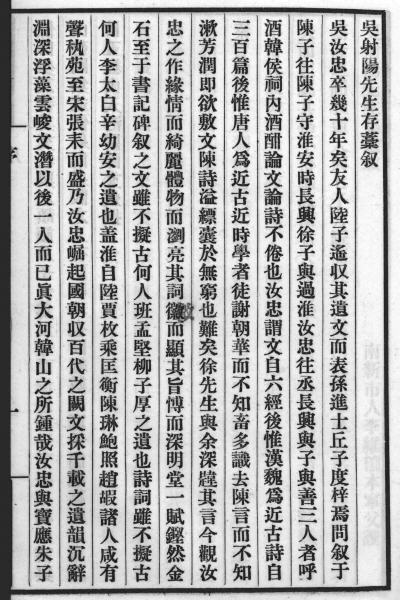 吳射陽先生存藁叙
吳汝忠卒幾十年矣友人陸子遙収其遺文而表孫進士丘子度梓焉問叙于
陳子往陳子守淮安時長興徐子與過淮汝忠往丞長興與子與善三人者呼
酒韓侯祠内酒酣論文論詩不倦也汝忠謂文自六經後惟漢魏爲近古詩自
三百篇後惟唐人爲近古近時學者徒謝朝華而不知畜多識去陳言而不知
漱芳潤即欲敷文陳詩溢縹囊於無窮也難矣徐先生與余深韙其言今觀汝
忠之作緣情而綺麗體物而瀏亮其詞微而顯其旨愽而深明堂一賦鏗然金
石至于書記碑叙之文雖不擬古何人班孟堅柳子厚之遺也詩詞雖不擬古
何人李太白辛幼安之遺也盖淮自陸賈枚乘匡衡陳琳鮑照趙嘏諸人咸有
聲執苑至宋張耒而盛乃汝忠崛起國朝収百代之闕文採千載之遺韻沉辭
淵深浮藻雲峻文濳以後一人而已眞大河韓山之所鍾哉汝忠與寳應朱子